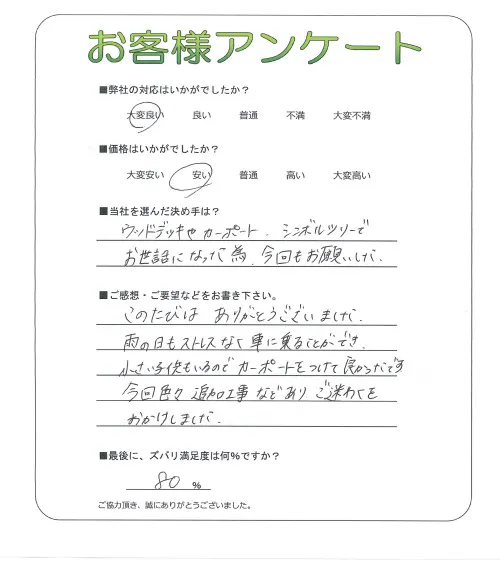 お客様アンケート
■弊社の対応はいかがでしたか？
大変良い 良い 普通 不満 大変不満
■価格はいかがでしたか？
大変安い 安い 普通 高い 大変高い
■当社を選んだ決め手は？
ウッドデッキや カーポート．シンボルツリーで
お世話になった為、今回もお願いした．
■ご感想・ご要望などをお書き下さい。
このたびは ありがとうございました．
雨の日もストレスなく車に乗ることができ．
小さい子供もいるのでカーポートをつけて良かったです
今回色々追加工事などあり ご迷わくを
おかけしました．
■最後に、ズバリ満足度は何％ですか？
80 ％
ご協力頂き、誠にありがとうございました。